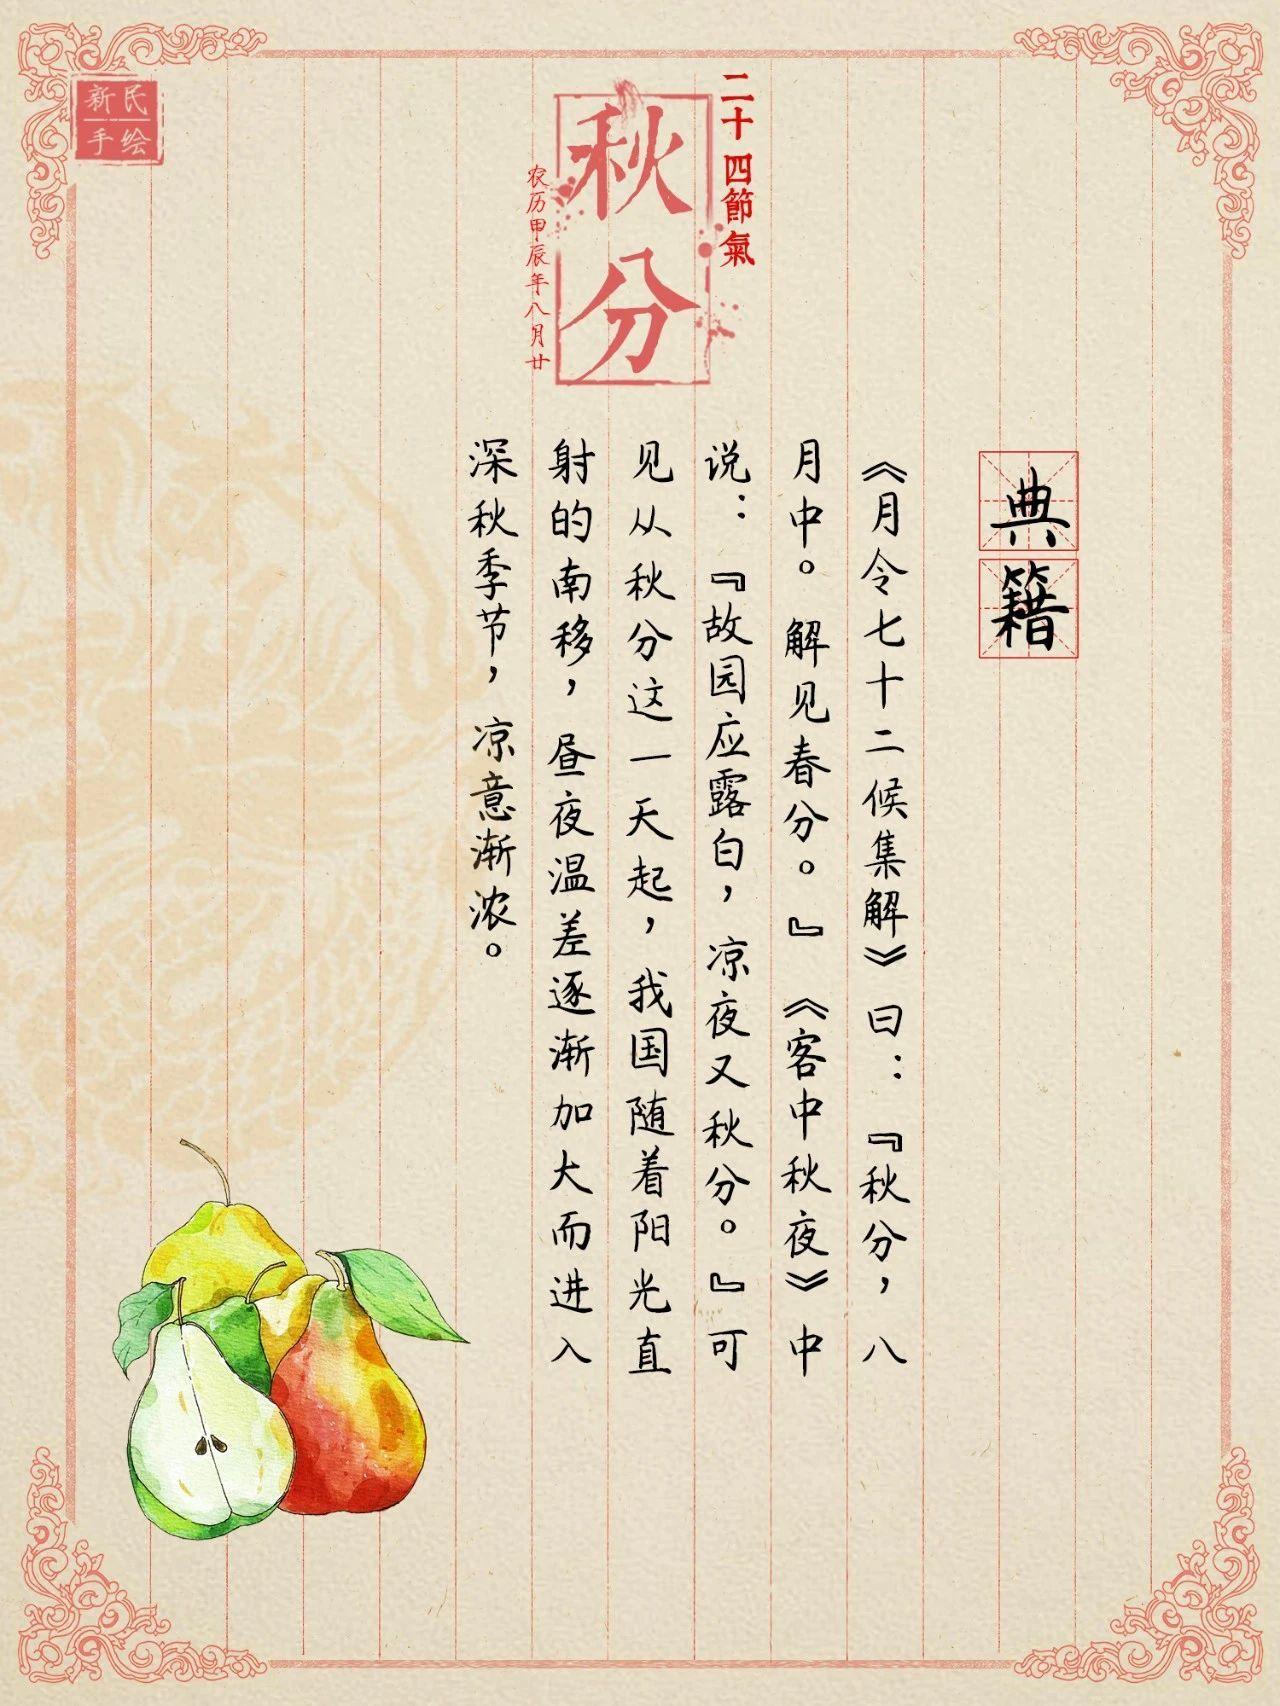 新民
手绘
二十四節氣
秋分
农历甲辰年八月廿
典籍
《月令七十二候集解》曰：『秋分，八
月中。解见春分。』《客中秋夜》中
说：『故园应露白，凉夜又秋分。』可
见从秋分这一天起，我国随着阳光直
射的南移，昼夜温差逐渐加大而进入
深秋季节，凉意渐浓。